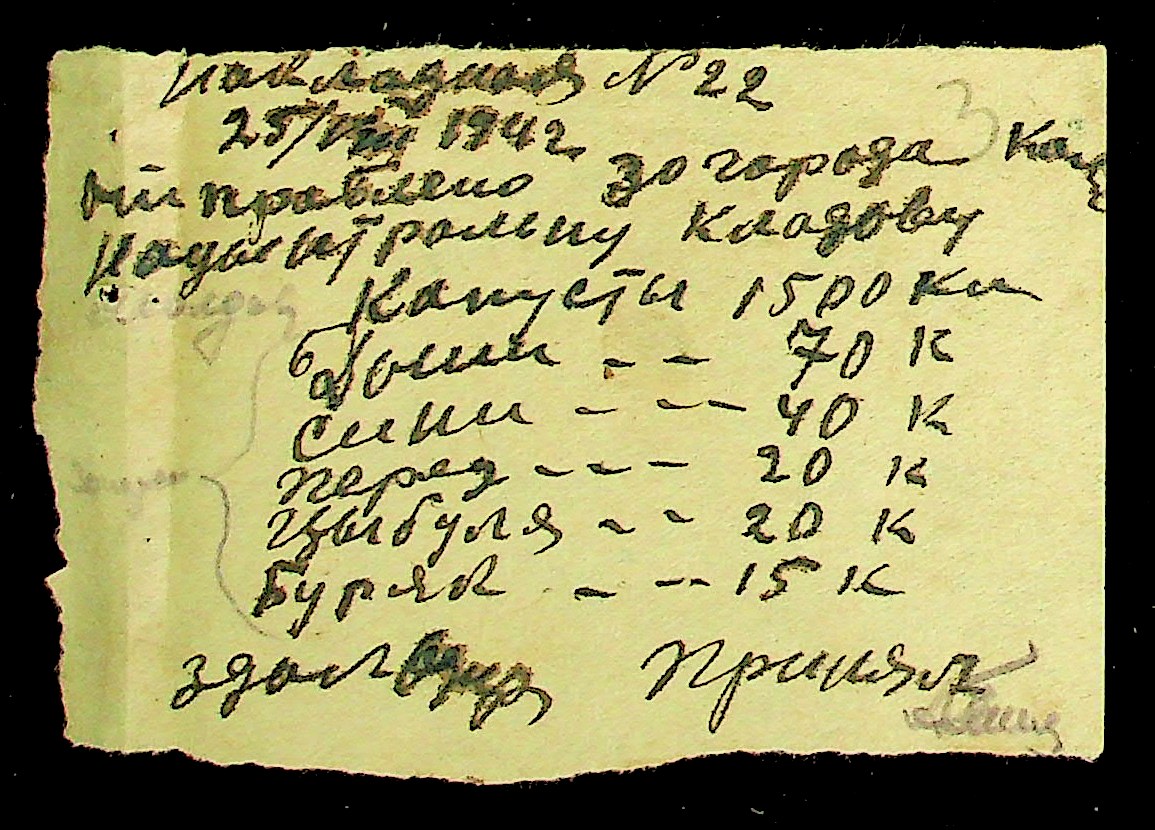 Накладная №22
25/VIII 1942
Отправлено зо города
На центральну кладову
Капусты 1500 кл
Дыни -- 70 к
сини --- 40 к
перец --- 20 к
Цыбуля -- 20 к
Буряк --- 15 к
здал Принял